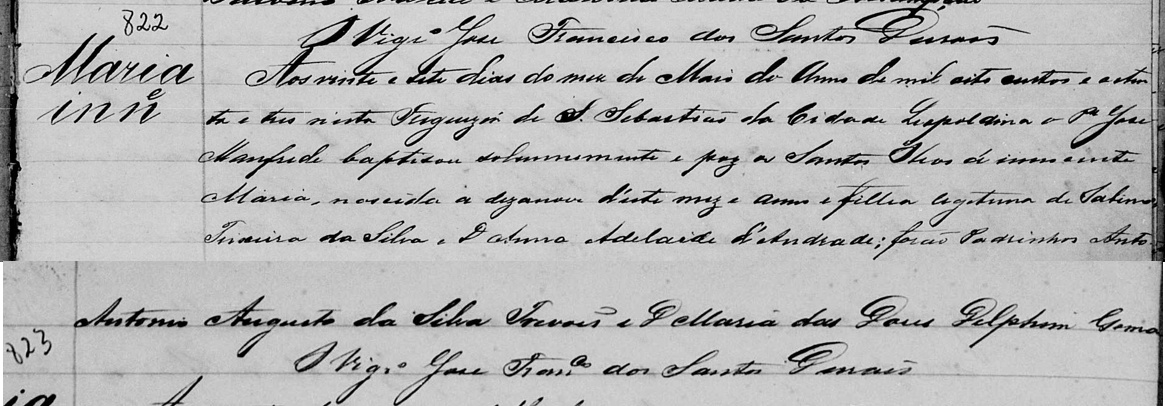 822
O Vigrº Jose Francisco dos Santos Duraes
Maria
innᵉ
Aos vinte e sete dias do mez de Maio do Anno de mil oito centos e oiten
ta e tres nesta Freguezia de S. Sebastião da Cidade Leopoldina o Pᵉ Jose
Manfrede baptisou solemnemente e poz os Santos Oleos á innocente
Maria, nascida a dezanove d'este mez e anno e filha legitima de Sabino
Teixeira da Silva e D Anna Adelaide d'Andrade; forão Padrinhos Anto-
Antonio Augusto da Silva e D Maria das Dores Delphim
823
O Vigrº Jose Franᶜᵒ dos Santos Duraes